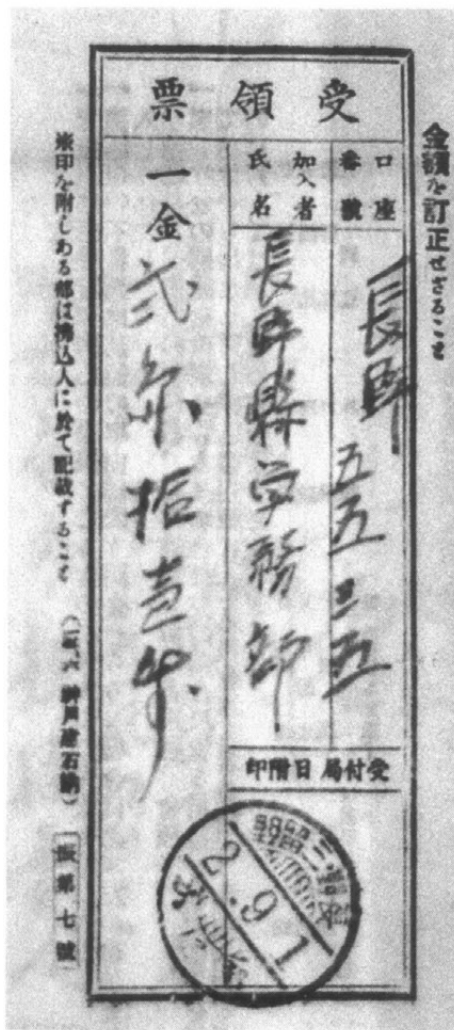 金額を訂正せざること
受領票
口座番號
長野 五五三五
加入者氏名
長野縣学務部
受付局日附印
2.9.1
一金
弐 拾壱
印を附しある部は拂込人に於て記載すること
振第七號